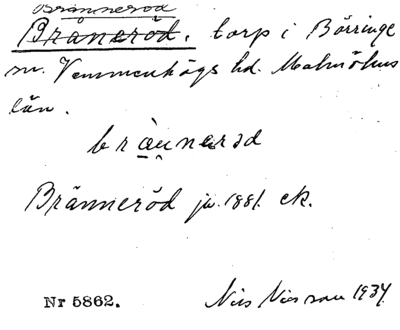 Bränneröd
Bråneröd. torp i Börringe
sn. Vemmenhögs hd. Malmöhus
län.
brännerəd
Bränneröd ju. 1881. ek.
Nr 5862. Nils Nilsson 1934